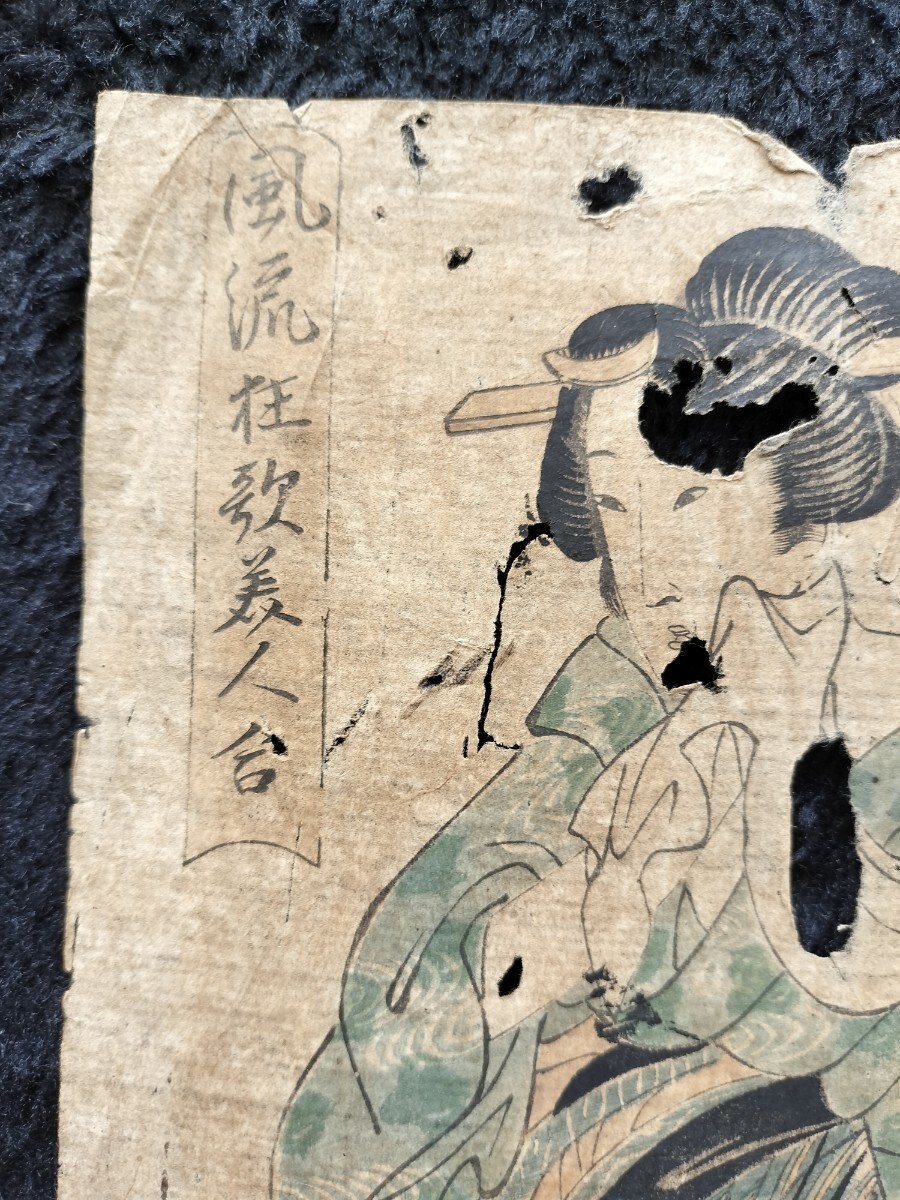 風流狂歌美人合